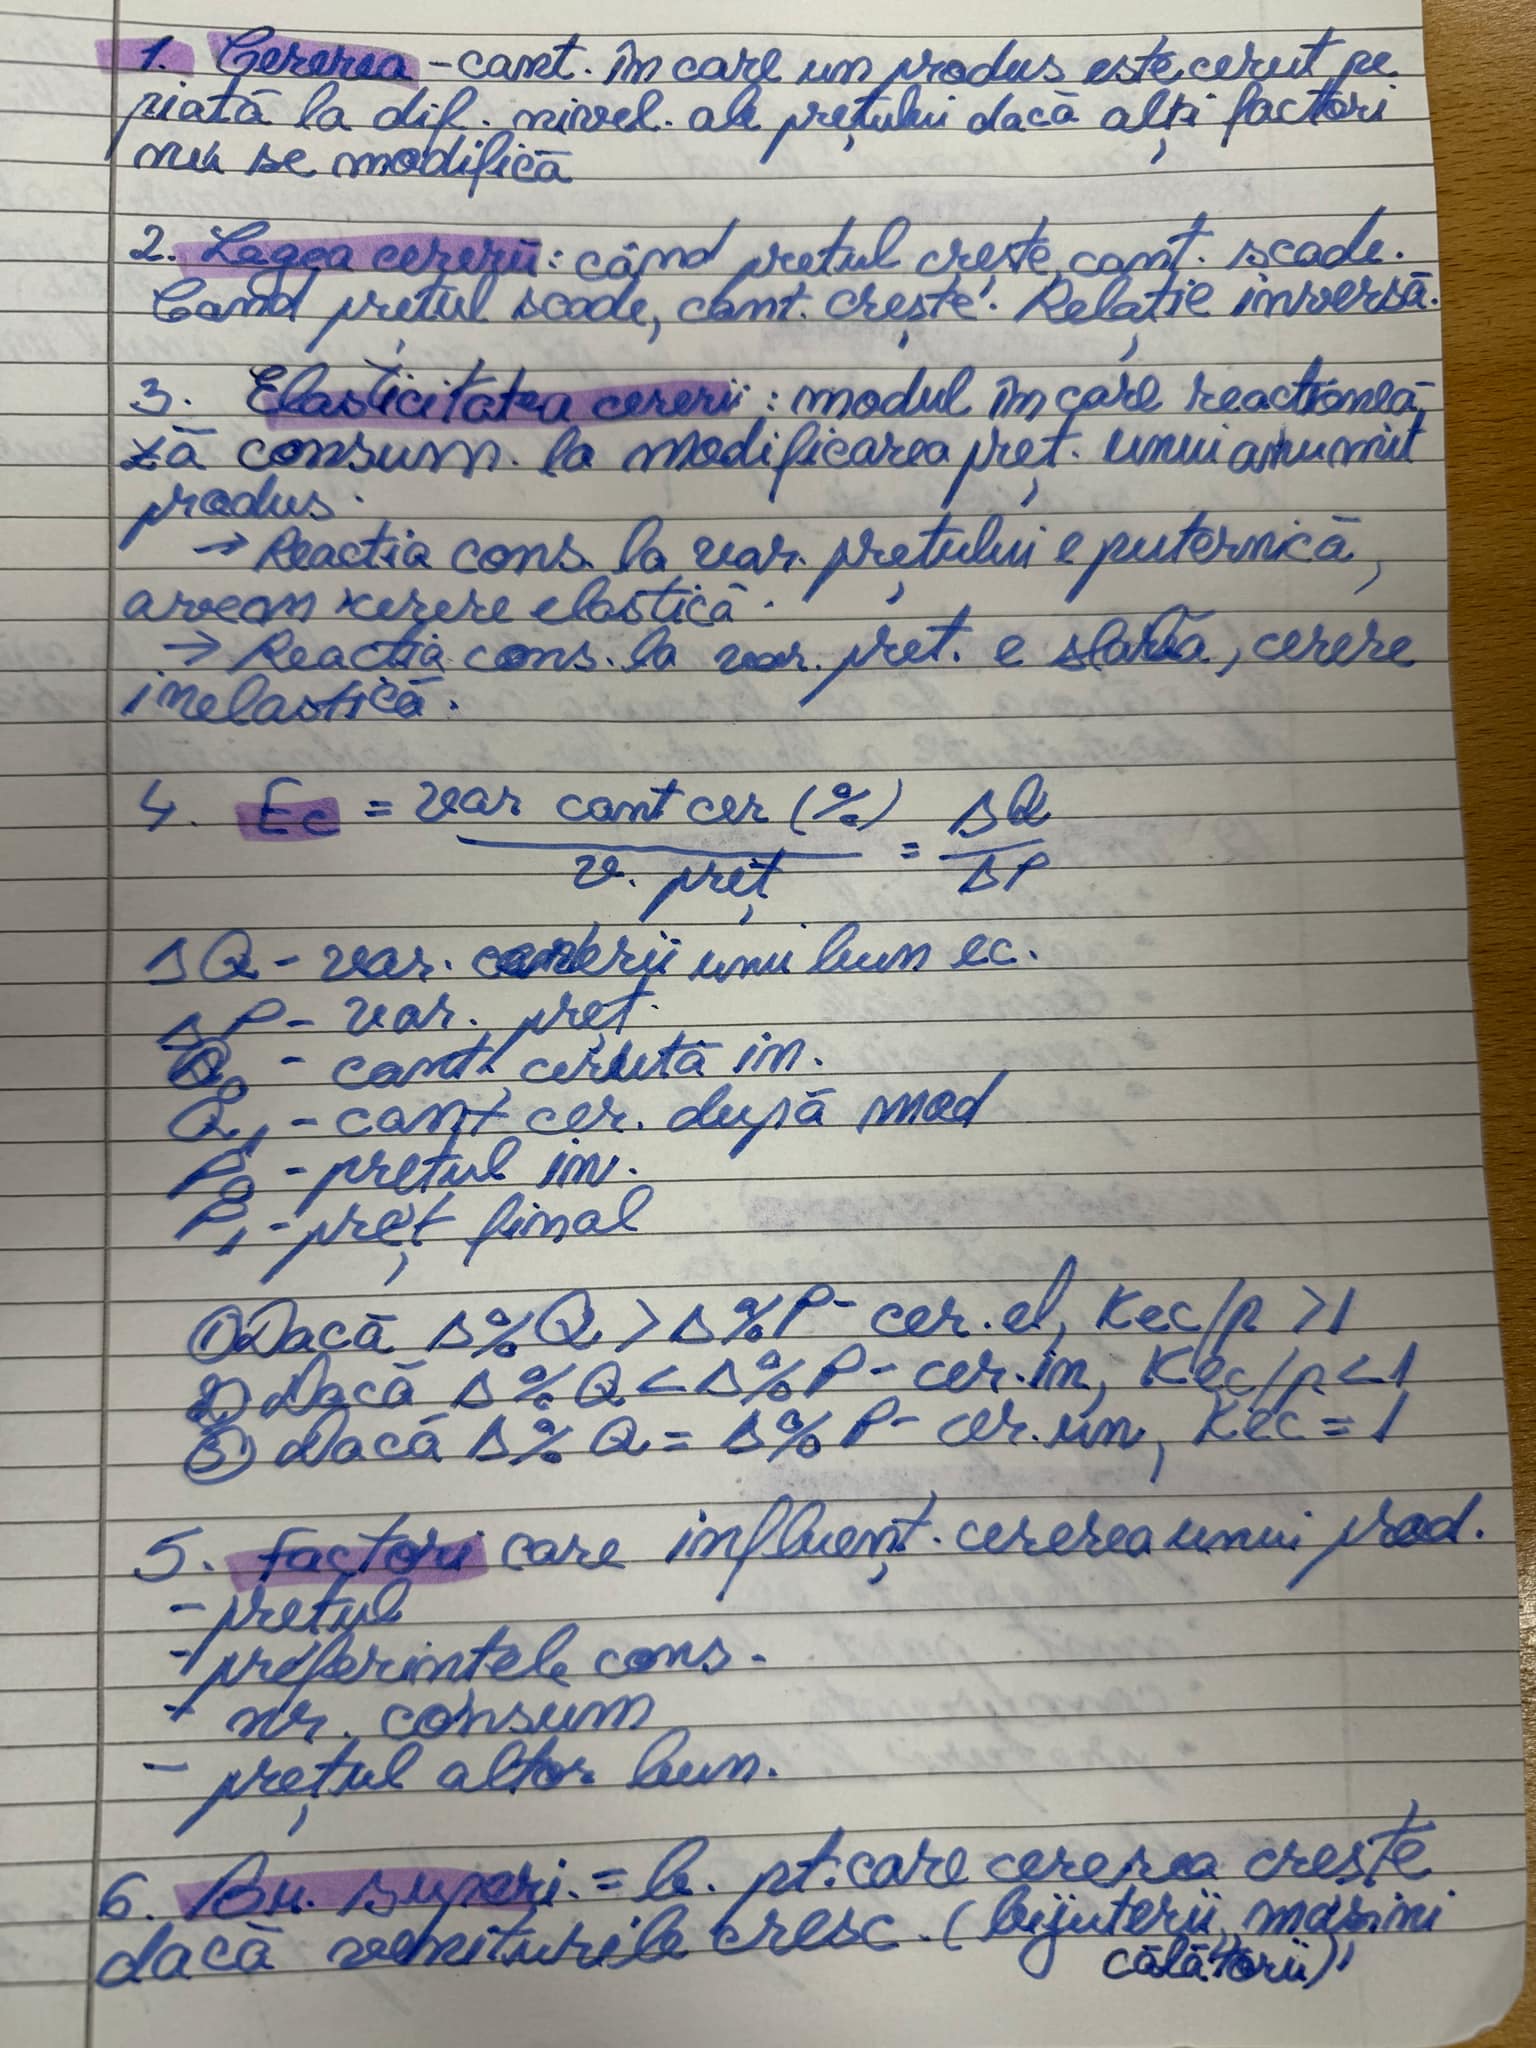 1. Cererea - cant. în care un produs este cerut pe
piată la dif. nivel. ale prețului dacă alți factori
nu se modifică
2. Legea cererii: când prețul crește, cant. scade.
Cand prețul scade, cant. crește. Relație inversă.
3. Elasticitatea cererii: modul în care reactionea
ză consum. la modificarea preț. unui anumit
produs.
→ Reactia cons. la var. prețului e puternică,
avem cerere elastică.
→ Reactia cons. la var. preț. e slabă, cerere
inelastică.
4. Ec = var cant cer (%) / v. preț = ΔQ / ΔP
ΔQ - var. cererii unui bun ec.
ΔP - var. preț.
Q0 - cant. cerută in.
Q1 - cant cer. după mod
P0 - prețul in.
P1 - preț final
① Dacă Δ%Q > Δ%P - cer. el, Kec/p > 1
2) Dacă Δ%Q < Δ%P - cer. in, Kec/p < 1
③ Dacă Δ%Q = Δ%P - cer. un, Kec = 1
5. Factori care influenț. cererea unui prod.
- prețul
- preferintele cons.
- nr. consum
- prețul altor bun.
6. Bu. superi. = b. pt. care cererea crește
dacă veniturile cresc. (bijuterii, mașini
călătorii)